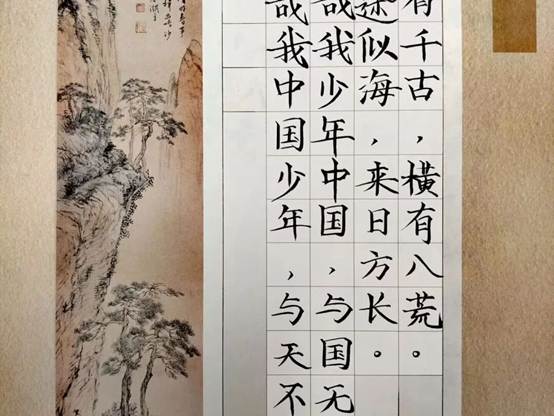 有千古，横有八荒。
途似海，来日方长。
哉我少年中国，与国无
哉我中国少年，与天不